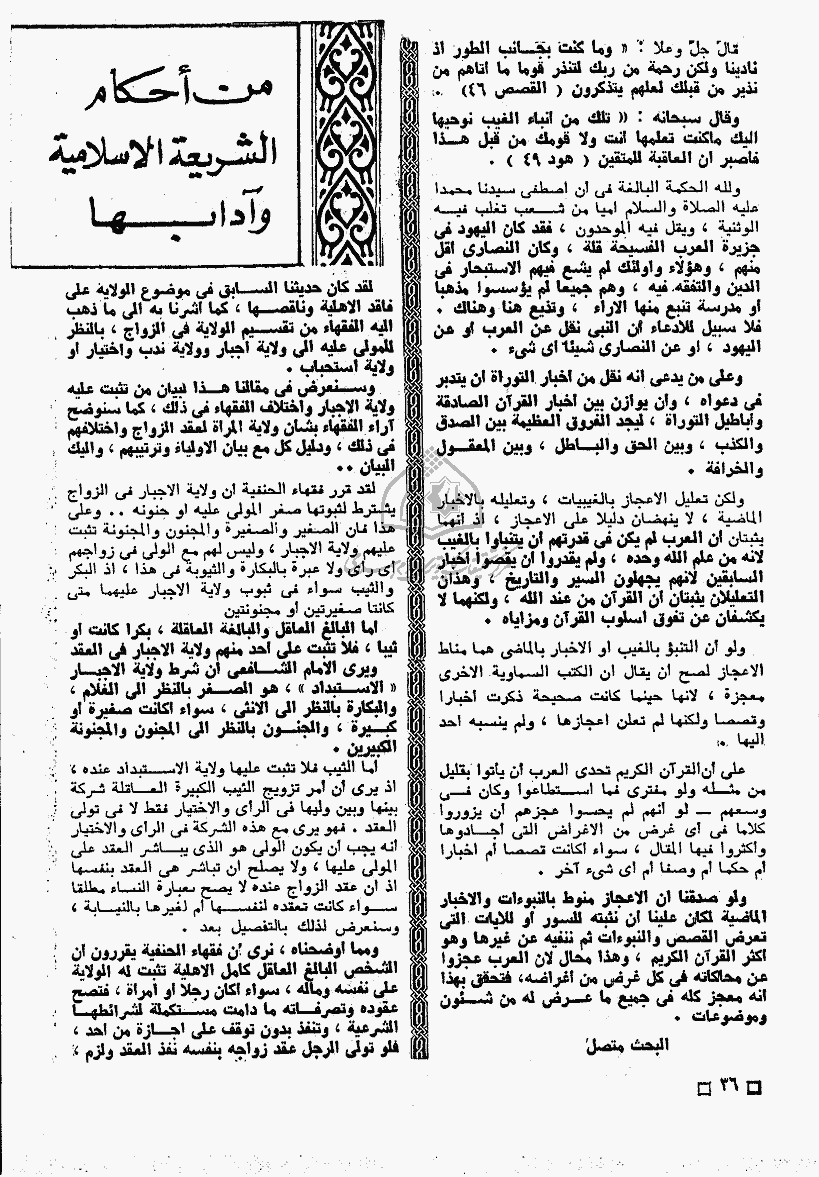 قال جل وعلا : « وما كنت بجانب الطور اذ
نادينا ولكن رحمة من ربك لتنذر قوما ما اتاهم من
نذير من قبلك لعلهم يتذكرون ( القصص ٤٦) .
وقال سبحانه : « تلك من انباء الغيب نوحيها
اليك ماكنت تعلمها انت ولا قومك من قبل هــذا
فاصبر ان العاقبة للمتقين ( هود ٤٩ ) .
ولله الحكمة البالغة فى ان اصطفى سيدنا محمدا
عليه الصلاة والسلام اميا من شــعب تغلب فيــه
الوثنية ، ويقل فيه الموحدون ، فقد كان اليهود فى
جزيرة العرب الفسيحة قلة ، وكان النصارى اقل
منهم ، وهؤلاء واولئك لم يشع فيهم الاستبحار فى
الدين والتفقه فيه ، وهم جميعا لم يؤسسوا مذهبا
او مدرسة تنبع منها الاراء ، وتذيع هنا وهناك .
فلا سبيل للادعاء أن النبى نقل عن العرب أو عن
اليهود ، او عن النصارى شيئا اى شىء .
وعلى من يدعى انه نقل من اخبار التوراة ان يتدبر
فى دعواه ، وان يوازن بين اخبار القرآن الصادقة
وأباطيل التوراة ، ليجد الفروق العظيمة بين الصدق
والكذب ، وبين الحق والبــاطل ، وبين المعقــول
والخرافة .
ولكن تعليل الاعجاز بالغيبيات ، وتعليله بالاخبار
الماضية ، لا ينهضان دليلا على الاعجاز ، اذ انهما
يثبتان أن العرب لم يكن فى قدرتهم أن يتنباوا بالغيب
لانه من علم الله وحده ، ولم يقدروا ان يقصوا اخبار
السابقين لانهم يجهلون السير والتاريخ ، وهذان
التعليلان يثبتان ان القرآن من عند الله ، ولكنهما لا
يكشفان عن تفوق اسلوب القرآن ومزاياه .
ولو أن التنبؤ بالغيب او الاخبار بالماضى هما مناط
الاعجاز لصح أن يقال ان الكتب السماوية الاخرى
معجزة ، لانها حينما كانت صحيحة ذكرت اخبارا
وقصصا ولكنها لم تعلن اعجازها ، ولم ينسبه احد
اليها .
على أن القرآن الكريم تحدى العرب أن يأتوا بقليل
من مثــله ولو مفترى فما اســتطاعوا وكان فــى
وسعهم ــ لو أنهم لم يحسوا عجزهم أن يزوروا
كلاما فى أى غرض من الاغراض التى اجــادوها
واكثروا فيها المقال ، سواء اكانت قصصا أم اخبارا
أم حكما أم وصفا أم اى شىء آخر .
ولو صدقنا ان الاعجاز منوط بالنبوءات والاخبار
الماضية لكان علينا ان نثبته للسور او للايات التى
تعرض القصص والنبوءات ثم ننفيه عن غيرها وهو
اكثر القرآن الكريم ، وهذا محال لان العرب عجزوا
عن محاكاته فى كل غرض من أغراضه، فتحقق بهذا
انه معجز كله فى جميع ما عــرض له من شــئون
وموضوعات .
البحث متصل
من أحكام
الشريعة الإسلامية
وآدابــها
لقد كان حديثنا الســابق فى موضوع الولاية على
فاقد الاهلية وناقصــها ، كما اشرنا به الى ما ذهب
اليه الفقهاء من تقســيم الولاية فى الزواج ، بالنظر
للمولى عليه الى ولاية اجبار وولاية ندب واختيار او
ولاية استحباب .
وســنعرض فى مقالنا هــذا لبيان من تثبت عليه
ولاية الاجبار واختلاف الفقهاء فى ذلك ، كما سنوضح
آراء الفقهاء بشان ولاية المراة لعقد الزواج واختلافهم
فى ذلك ، ودليل كل مع بيان الاولياء وترتيبهم ، واليك
البيان ..
لقد قرر فقهاء الحنفية ان ولاية الاجبار فى الزواج
يشترط لثبوتها صغر المولى عليه او جنونه .. وعلى
هذا فان الصغير والصغيرة والمجنون والمجنونة تثبت
عليهم ولاية الاجبار ، وليس لهم مع الولى فى زواجهم
اى راى ولا عبرة بالبكارة والثيوبة فى هذا ، اذ البكر
والثيب سواء فى ثبوب ولاية الاجبار عليهما متى
كانتا صغيرتين أو مجنونتين
اما البالغ العاقل والبالغة العاقلة ، بكرا كانت أو
ثيبا ، فلا تثبت على احد منهم ولاية الاجبار فى العقد
ويرى الامام الشــافعى أن شرط ولاية الاجبــار
« الاســتبداد » ، هو الصــغر بالنظر الى الغلام ،
والبكارة بالنظر الى الانثى ، سواء اكانت صغيرة أو
كبــيرة ، والجنــون بالنظر الى المجنون والمجنونة
الكبيرين .
أما الثيب فلا تثبت عليها ولاية الاســتبداد عنده ،
اذ يرى أن أمر تزويج الثيب الكبيرة العــاقلة شركة
بينها وبين وليها فى الراى والاختيار فقط لا فى تولى
العقد . فهو يرى مع هذه الشركة فى الراى والاختيار
أنه يجب أن يكون الولى هو الذى يبــاشر العقد على
المولى عليها ، ولا يصلح أن تباشر هى العقد بنفسها
اذ ان عقد الزواج عنده لا يصح بعبارة النساء مطلقا
ســواء كانت تعقده لنفســها أم لغيرها بالنيــابة ،
وسنعرض لذلك بالتفصيل بعد .
ومما أوضحناه ، نرى أن فقهاء الحنفية يقررون أن
الشخص البالغ العاقل كامل الاهلية تثبت له الولاية
على نفسه وماله ، سواء اكان رجلا أو امرأة ، فتصح
عقوده وتصرفــاته ما دامت مســتكملة لشرائطهــا
الشرعية ، وتنفذ بدون توقف على اجــازة من احد ،
فلو تولى الرجل عقد زواجه بنفسه نفذ العقد ولزم ،
٣٦